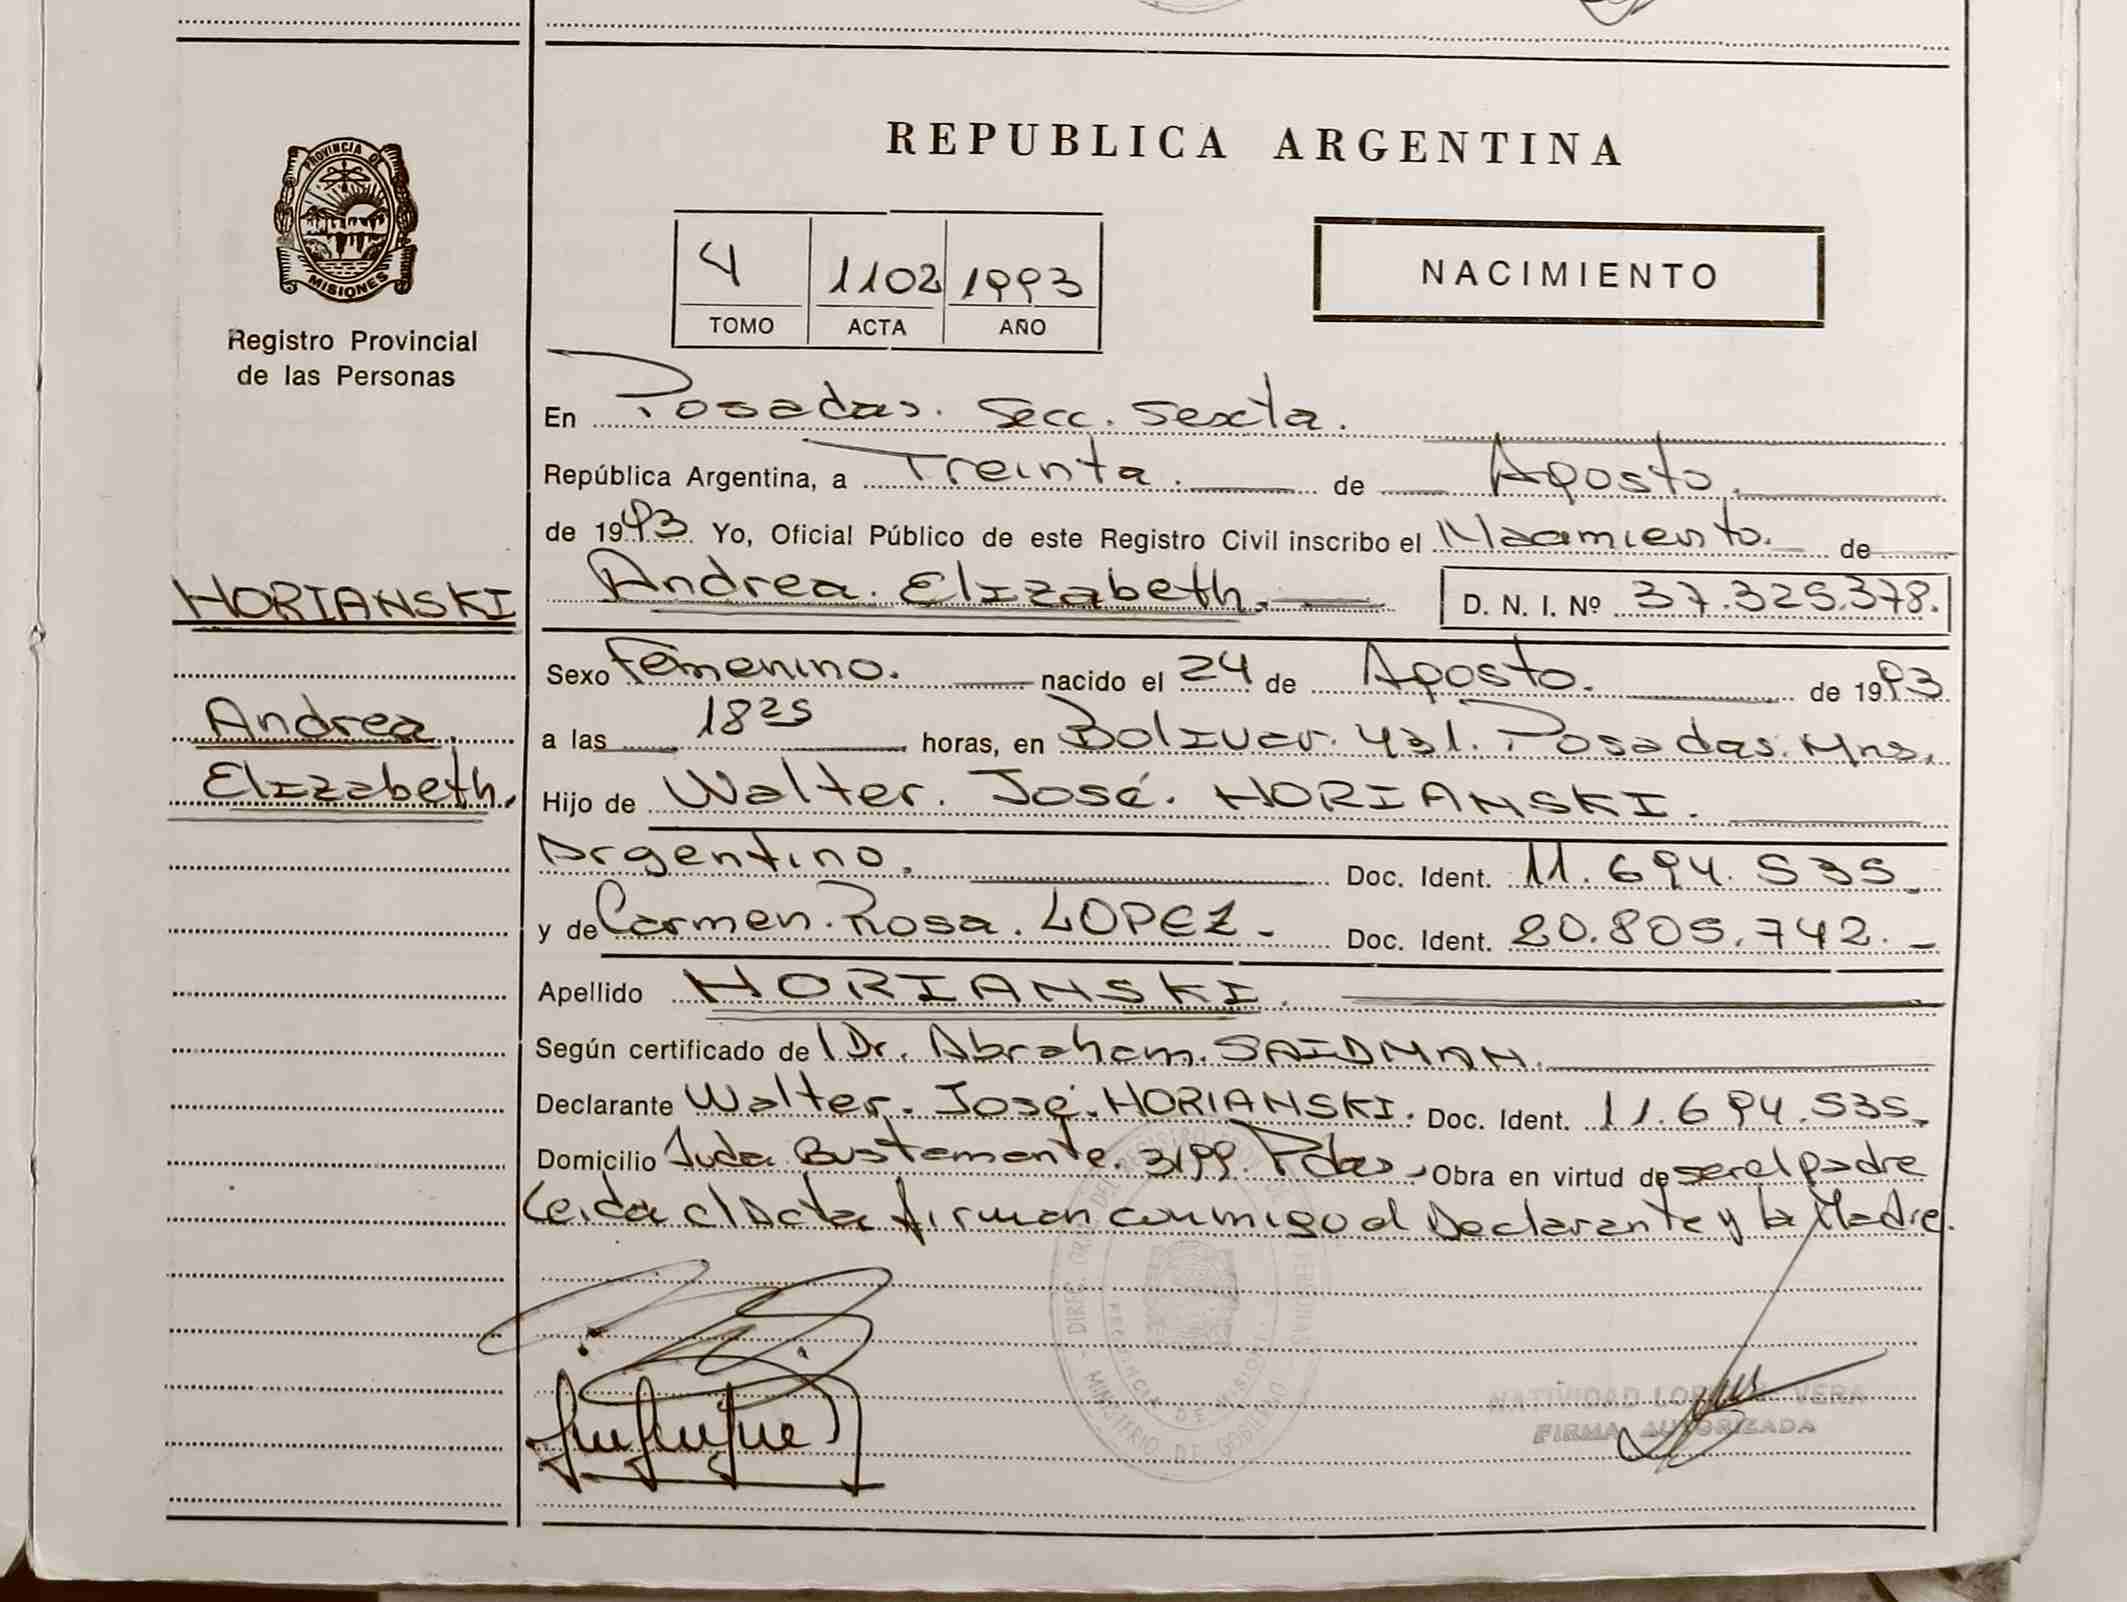 PROVINCIA DE
MISIONES
Registro Provincial
de las Personas
HORIANSKI
Andrea.
Elizabeth.
REPUBLICA ARGENTINA
4 1102 1993
TOMO ACTA AÑO
NACIMIENTO
En Posadas. Secc. Sexta.
República Argentina, a Treinta. de Agosto.
de 1993 Yo, Oficial Público de este Registro Civil inscribo el Nacimiento. de
Andrea. Elizabeth. D. N. I. Nº 37.325.378.
Sexo Femenino. nacido el 24 de Agosto. de 1993
a las 18 25 horas, en Bolivar. 431. Posadas. Mns.
Hijo de Walter. José. HORIANSKI.
Argentino. Doc. Ident. 11.694.535.
y de Carmen. Rosa. LOPEZ. Doc. Ident. 20.805.742.
Apellido HORIANSKI.
Según certificado del Dr. Abraham. SAIDMAN.
Declarante Walter. José. HORIANSKI. Doc. Ident. 11.694.535.
Domicilio Avda. Bustamante. 3199. Pdas. Obra en virtud de ser el padre
Leida el Acta firman conmigo el Declarante y la Madre.
MINISTERIO DE GOBIERNO
NATIVIDAD VERA
FIRMA AUTORIZADA